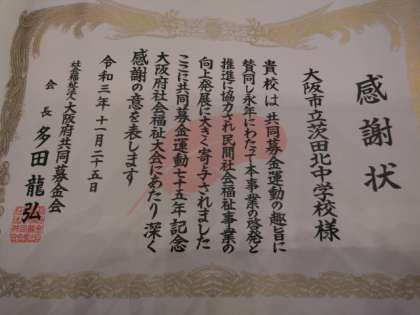 感謝状
大阪市立茨田北中学校様
貴校は共同募金運動の趣旨に
賛同し永年にわたって本事業の啓発と
推進に協力され民間社会福祉事業の
向上発展に大きく寄与されました
ここに共同募金運動七十五年記念
大阪府社会福祉大会にあたり深く
感謝の意を表します
令和三年十一月二十五日
社会福祉法人大阪府共同募金会
会長 多田龍弘